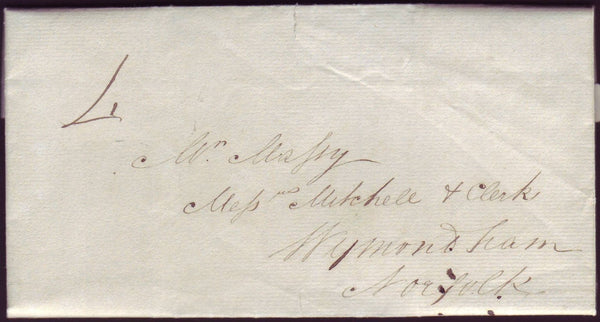 Mr. Massy
Messrs Mitchell & Clerk
Wymondham
Norfolk